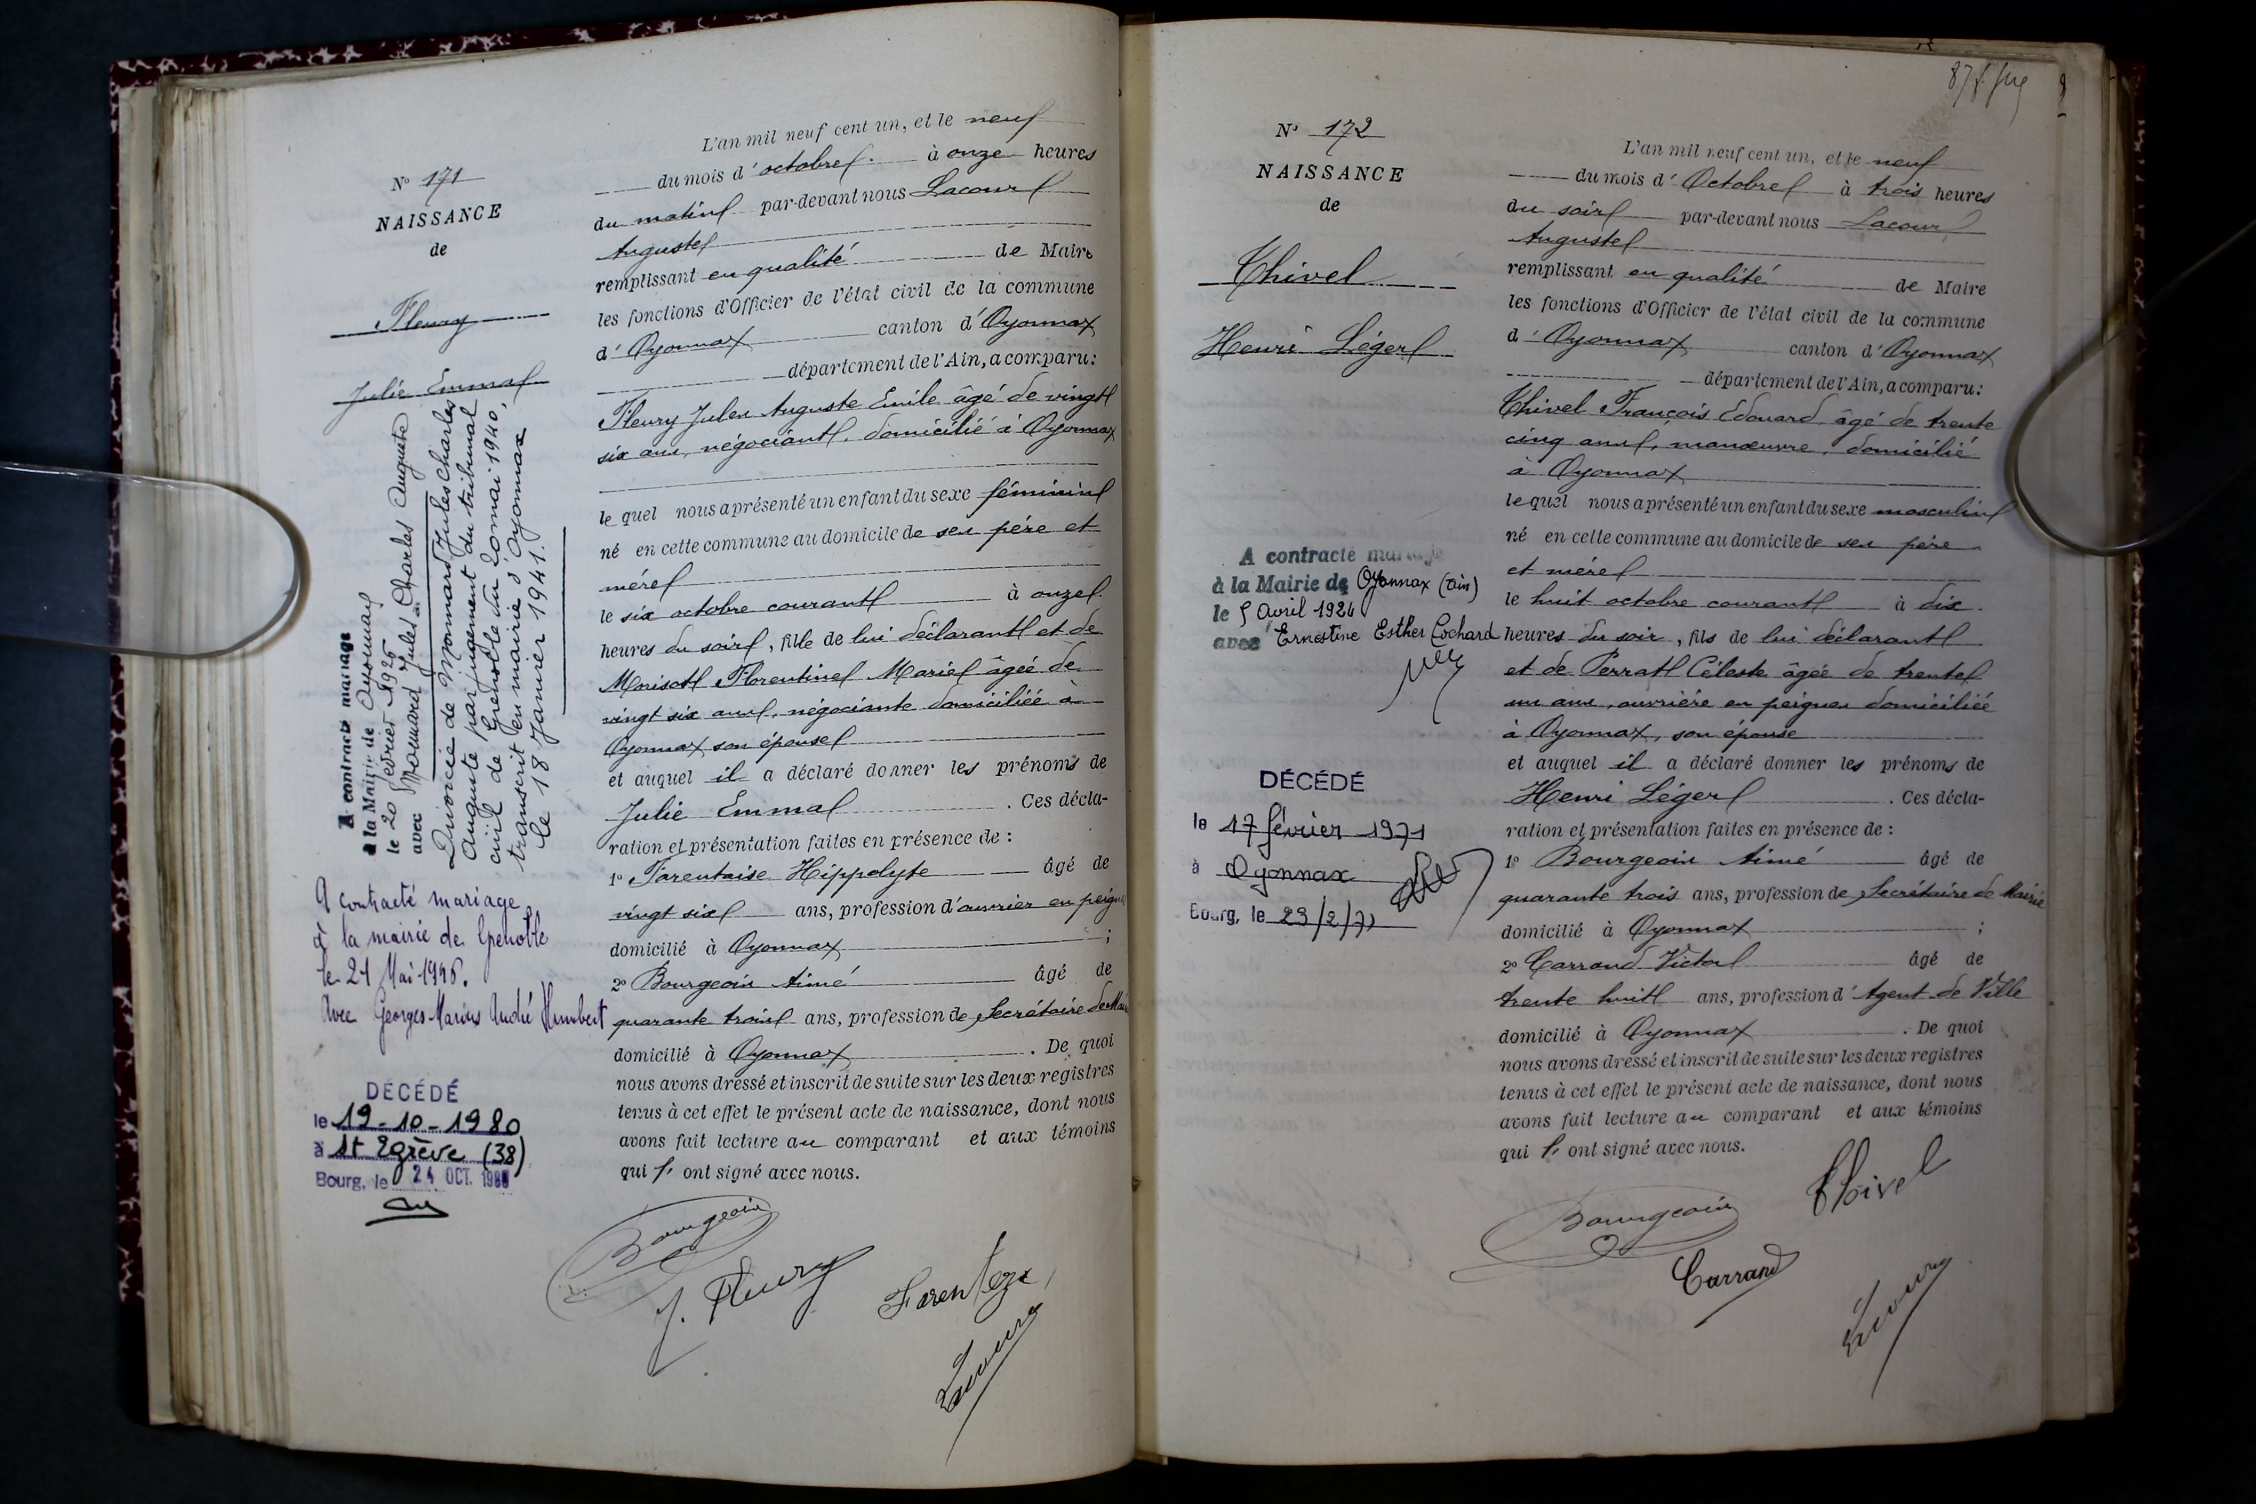 N° 171
NAISSANCE
de
Fleury
Julie Emma
A contracté mariage
à la Mairie de Oyonnax
le 20 Février 1926
avec Monnard Jules Charles Auguste
Divorcée de Monnard Jules Charles
Auguste par jugement du tribunal
civil de Grenoble du 20 mai 1940,
transcrit en mairie d'Oyonnax
le 18 Janvier 1941.
A contracté mariage
à la mairie de Grenoble
le 21 Mai 1946.
Avec Georges Marius André Humbert
DÉCÉDÉ
le 19-10-1980
à St Egrève (38)
Bourg, le 24 OCT. 1980
L'an mil neuf cent un, et le neuf
du mois d'octobre à onze heures
du matin par-devant nous Lacour
Auguste
remplissant en qualité de Maire
les fonctions d'Officier de l'état civil de la commune
d'Oyonnax canton d'Oyonnax
département de l'Ain, a comparu:
Fleury Jules Auguste Emile âgé de vingt
six ans, négociant, domicilié à Oyonnax
le quel nous a présenté un enfant du sexe féminin
né en cette commune au domicile de ses père et
mère
le six octobre courant à onze
heures du soir, fille de lui déclarant et de
Morisot Florentine Marie âgée de
vingt six ans, négociante domiciliée à
Oyonnax son épouse
et auquel il a déclaré donner les prénoms de
Julie Emma . Ces décla-
ration et présentation faites en présence de :
1° Tarentaise Hippolyte âgé de
vingt six ans, profession d'ouvrier en peignes
domicilié à Oyonnax ;
2° Bourgeois Aimé âgé de
quarante trois ans, profession de Secrétaire de Mairie
domicilié à Oyonnax . De quoi
nous avons dressé et inscrit de suite sur les deux registres
tenus à cet effet le présent acte de naissance, dont nous
avons fait lecture au comparant et aux témoins
qui l' ont signé avec nous.
Bourgeois
J. Fleury
Lacour
N° 172
NAISSANCE
de
Chivel
Henri Léger
A contracté mariage
à la Mairie de Oyonnax (Ain)
le 5 Avril 1924
avec Ernestine Esther Cochard
DÉCÉDÉ
le 17 février 1971
à Oyonnax
Bourg, le 23/2/71
L'an mil neuf cent un, et le neuf
du mois d'Octobre à trois heures
du soir par-devant nous Lacour
Auguste
remplissant en qualité de Maire
les fonctions d'Officier de l'état civil de la commune
d'Oyonnax canton d'Oyonnax
département de l'Ain, a comparu:
Chivel François Edouard, âgé de trente
cinq ans, manœuvre, domicilié
à Oyonnax
le quel nous a présenté un enfant du sexe masculin
né en cette commune au domicile de ses père
et mère
le huit octobre courant à dix
heures du soir, fils de lui déclarant
et de Perrat Céleste âgée de trente
un ans, ouvrière en peignes domiciliée
à Oyonnax, son épouse
et auquel il a déclaré donner les prénoms de
Henri Léger . Ces décla-
ration et présentation faites en présence de :
1° Bourgeois Aimé âgé de
quarante trois ans, profession de Secrétaire de Mairie
domicilié à Oyonnax ;
2° Carrand Victor âgé de
trente huit ans, profession d'Agent de Ville
domicilié à Oyonnax . De quoi
nous avons dressé et inscrit de suite sur les deux registres
tenus à cet effet le présent acte de naissance, dont nous
avons fait lecture au comparant et aux témoins
qui l' ont signé avec nous.
Chivel
Bourgeois
Carrand
Lacour